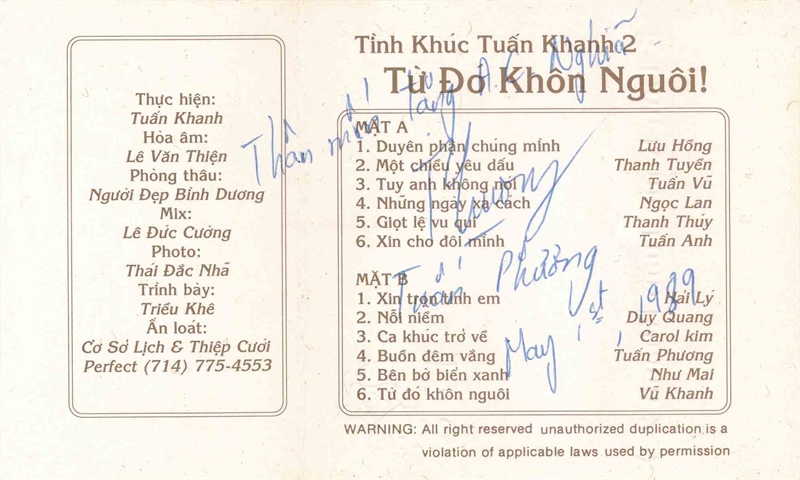 Thực hiện:
Tuấn Khanh
Hòa âm:
Lê Văn Thiện
Phòng thâu:
Người Đẹp Bình Dương
Mix:
Lê Đức Cường
Photo:
Thái Đắc Nhã
Trình bày:
Triều Khê
Ấn loát:
Cơ Sở Lịch & Thiệp Cưới
Perfect (714) 775-4553
Tình Khúc Tuấn Khanh 2
Từ Đó Khôn Nguôi!
MẶT A
1. Duyên phận chúng mình Lưu Hồng
2. Một chiều yêu dấu Thanh Tuyền
3. Tuy anh không nói Tuấn Vũ
4. Những ngày xa cách Ngọc Lan
5. Giọt lệ vu quí Thanh Thúy
6. Xin cho đôi mình Tuấn Anh
MẶT B
1. Xin trọn tình em Hải Lý
2. Nỗi niềm Duy Quang
3. Ca khúc trở về Carol kim
4. Buồn đêm vắng Tuấn Phương
5. Bên bờ biển xanh Như Mai
6. Từ đó khôn nguôi Vũ Khanh
WARNING: All right reserved unauthorized duplication is a
violation of applicable laws used by permission
Thân mến tặng A.C Nghĩa
Phương
Tuấn Phương
May 1st, 1989